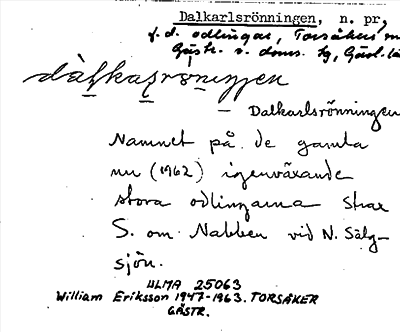 Dalkarlsrönningen, n. pr,
f.d. odlingar, Torsåkers
Gästr. v. doms. sg, Gävl. lä
dàlkaɭrönιngen
— Dalkarlsrönningen
Namnet på de gamla
nu (1962) igenväxande
stora odlingarna strax
S. om Nabben vid N. Sälg-
sjön.
ULMA 25063
William Eriksson 1947-1963. TORSÅKER
GÄSTR.